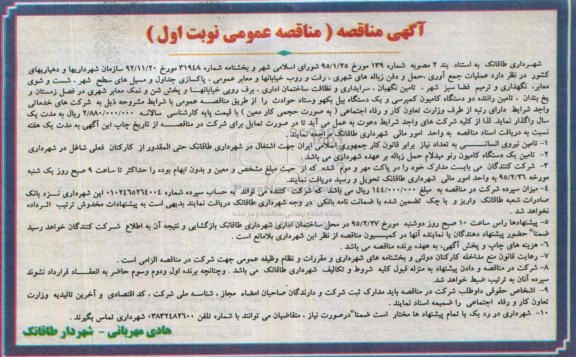 آگهی مناقصه ( مناقصه عمومی نوبت اول )
شهرداری طاقانک به استناد بند ۲ مصوبه شماره ۱۳۹ مورخ ۹۵/۱/۲۵ شورای اسلامی شهر و بخشنامه شماره ۳۱۹۴۸ مورخ ۹۲/۱۱/۲۰ سازمان شهرداریها و دهیاریهای
کشور در نظر دارد عملیات جمع آوری ،حمل و دفن زباله های شهری ، رفت و روب خیابانها و معابر عمومی . پاکسازی جداول و مسیل های سطح شهر ، شست و شوی
معابر، نگهداری و ترمیم فضا سبز شهر . تامین نگهبان ، سرایداری و نظافت ساختمان اداری . برف روبی خیابانها و پخش شن و نمک معابر شهری در فصل زمستان و
یخ بندان . تامین راننده دو دستگاه کامیون کمپرسی و یک دستگاه بیل بکهو وستاد حوادث را از طریق مناقصه عمومی با شرایط مشروحه ذیل به شرکت های خدماتی
واجد شرایط دارای رتبه از طرف وزارت تعاون کار و رفاه اجتماعی ( به صورت حجمی کار معین ) با قیمت پایه کارشناسی سالانه ۲/۸۸۰/۰۰۰/۰۰۰ ریال به مدت یک
سال واگذار نماید. لذا از کلیه شرکت های واجد شرایط دعوت به عمل می آید تا در صورت تمایل برای شرکت در مناقصه از تاریخ چاپ این آگهی به مدت یک هفته
نسبت به دریافت اسناد مناقصه به واحد امور مالی شهرداری طاقانک مراجعه نمایند .
۱- تامین نیروی انسانی به تعداد نیاز برابر قانون کار جمهوری اسلامی ایران جهت اشتغال در شهرداری طاقانک حتی المقدور از کارکنان فعلی شاغل در شهرداری
۲- تامین یک دستگاه کامیون رتو میدلام حمل زباله بر عهده شهرداری می باشد .
۳- شرکت کنندگان می بایست مدارک خود را در پاکت مهر و موم شده که از حیث مبلغ مشخص و معین و بدون ابهام بوده را حداکثر تا ساعت ۹ صبح روز یک شنبه
مورخه ۹۵/۲/۲۶ به واحد امور مالی شهرداری طاقانک تحویل و رسید دریافت نمایند.
۴- میزان سپرده شرکت در مناقصه به مبلغ ۱۴۴/۰۰۰/۰۰۰ ریال می باشد که شرکت کننده می تواند به حساب سپرده شماره ۰۱۰۲۴۶۵۲۶۴۰۰۴ این شهرداری نزد بانک
صادرات شعبه طاقانک واریز و یا چک تضمین شده یا ضمانت نامه بانکی در وجه شهرداری طاقانک دریافت نمایند بدیهی است به پیشنهادات مخدوش ترتیب اثر داده
نخواهد شد .
۵- پیشنهادها راس ساعت ۱۰ صبح روز دوشنبه مورخ ۹۵/۲/۲۷ در محل ساختمان اداری شهرداری طاقانک بازگشایی و نتیجه آن به اطلاع شرکت کنندگان خواهد رسید
ضمنا" حضور پیشنهاد دهندگان یا نماینده آنها در کمیسیون مناقصه از نظر این شهرداری بلامانع است
۶- هزینه های چاپ و پخش آگهی، به عهده برنده مناقصه می باشد .
۷- رعایت قانون منع مداخله کارکنان دولتی و بخشنامه های شهرداری و مقررات و نظام وظیفه عمومی جهت شرکت در مناقصه الزامی است .
۸- شرکت در مناقصه و دادن پیشنهاد به منزله قبول کلیه شروط و تکالیف شهرداری طاقانک می باشد . وچنانچه برنده اول ودوم وسوم حاضر به انعقاد قرارداد نشوند
سپرده آنان به ترتیب ضبط خواهد شد.
۹- اشخاص حقوقی داوطلب شرکت در مناقصه باید مدارک ثبت شرکت و دارندگان صاحبان امضاء مجاز ، شناسه ملی شرکت ، کد اقتصادی و آخرین تائیدیه وزارت
تعاون کار و رفاه اجتماعی را ضمیمه اسناد نمایند .
۱۰- شهرداری در رد یک یا تمام پیشنهاد ها مختار است ضمنا"درصورت نیاز ، متقاضیان می توانند با شماره تلفن ۰۳۸۳۲۴۸۲۶۰۰ شهرداری تماس بگیرند .
هادی مهربانی - شهردار طاقانک